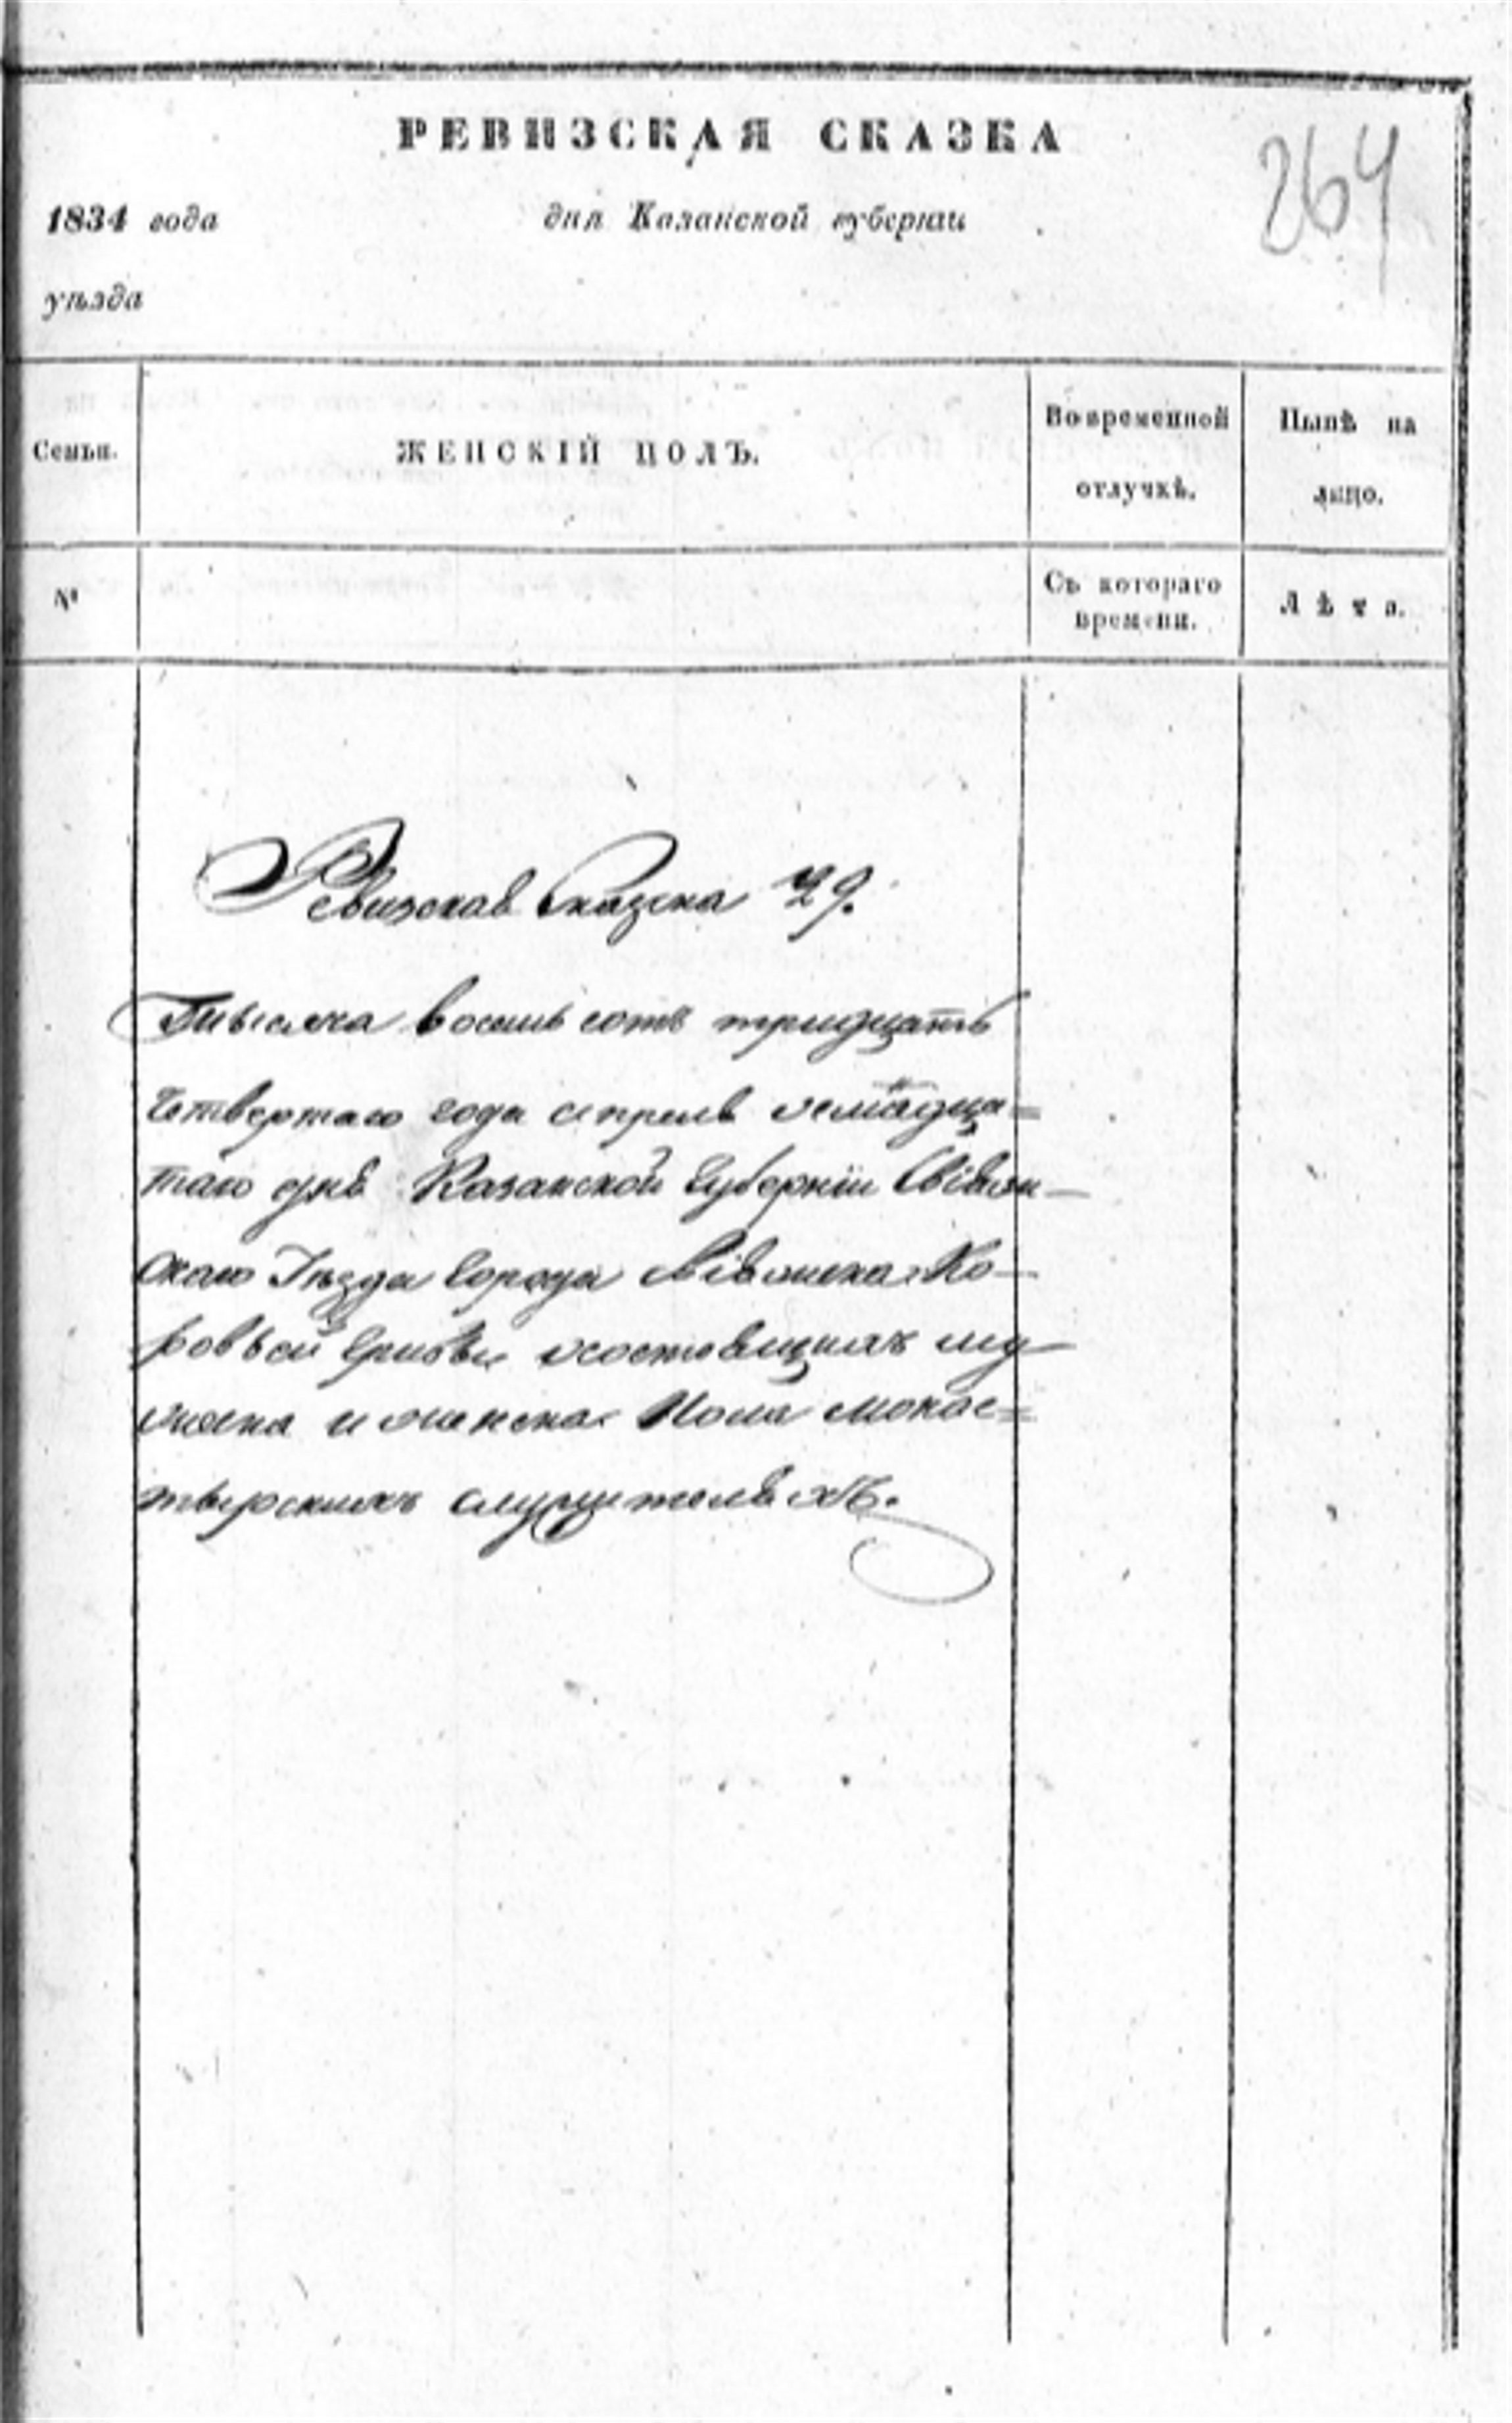 РЕВИЗСКАЯ СКАЗКА
264
1834 года дня Казанской губернии
уѣзда
Семьи.
ЖЕНСКІЙ ПОЛЪ.
Во временной
отлучкѣ.
Нынѣ на
лицо.
№
Съ котораго
времени.
Лѣта.
Ревизская Сказка 29.
Тысяча восемь сотъ тридцать
Четвертаго года апреля
таго дня Казанской Губерніи Свіяж-
скаго Уѣзда города Свіяжска Ко-
ровьей Гривы осостоящихъ му-
жеска и женска Пола монас-
тырскихъ служителяхъ.